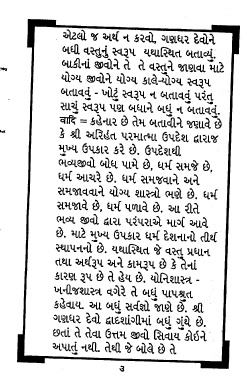 એટલો જ અર્થ ન કરવો, ગણધર દેવોને
બધી વસ્તુનું સ્વરૂપ યથાસ્થિત બતાવ્યું.
બાકીનાં જીવોને તે તે વસ્તુને જાણવા માટે
યોગ્ય જીવોને યોગ્ય કાલે-યોગ્ય સ્વરૂપ
બતાવવું - ખોટું સ્વરૂપ ન બતાવવું પરંતુ
સાચું સ્વરૂપ પણ બધાને બધું ન બતાવવું.
वादि = કહેનાર છે તેમ બતાવીને જણાવે છે
કે શ્રી અરિહંત પરમાત્મા ઉપદેશ દ્વારાજ
મુખ્ય ઉપકાર કરે છે. ઉપદેશથી
ભવ્યજીવો બોધ પામે છે, ધર્મ સમજે છે,
ધર્મ આચરે છે. ધર્મ સમજવાને અને
સમજાવવાને યોગ્ય શાસ્ત્રો ભણે છે. ધર્મ
સમજાવે છે, ધર્મ પળાવે છે. આ રીતે
ભવ્ય જીવો દ્વારા પરંપરાએ માર્ગ આવે
છે. માટે મુખ્ય ઉપકાર ધર્મ દેશનાનો તીર્થ
સ્થાપનનો છે. યથાસ્થિત જે વસ્તુ પ્રધાન
તથા અર્થરૂપ અને કામરૂપ છે કે તેનાં
કારણ રૂપ છે તે હેય છે. યોનિશાસ્ત્ર -
ખનીજશાસ્ત્ર વગેરે તે બધું પાપશ્રુત
કહેવાય. આ બધું સર્વજ્ઞો જાણે છે. શ્રી
ગણધર દેવો દ્વાદશાંગીમાં બધું ગુંથે છે.
છતાં તે તેવા ઉત્તમ જીવો સિવાય કોઇને
અપાતું નથી. તેથી જે બોલે છે તે
૩